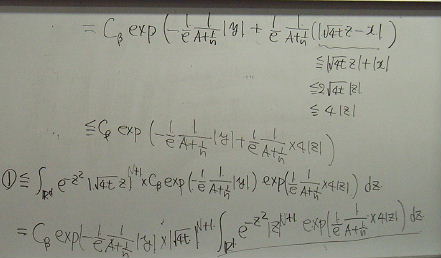 = C_β exp(-1/e 1/(A+1/n) |y| + 1/e 1/(A+1/n) (|√4t z - x|)
≦ |√4t z| + |x|
≦ 2√4t |z|
≦ 4|z|
≦ C_β exp(-1/e 1/(A+1/n) |y| + 1/e 1/(A+1/n) × 4|z|)
① ≦ ∫_{ℝ^d} e^{-z²} |√4t z|^{N+1} × C_β exp(-1/e 1/(A+1/n) |y|) exp(1/e 1/(A+1/n) × 4|z|) dz
= C_β exp(-1/e 1/(A+1/n) |y| × |√4t|^{N+1} ∫_{ℝ^d} e^{-z²} |z|^{N+1} exp(1/e 1/(A+1/n) × 4|z|) dz